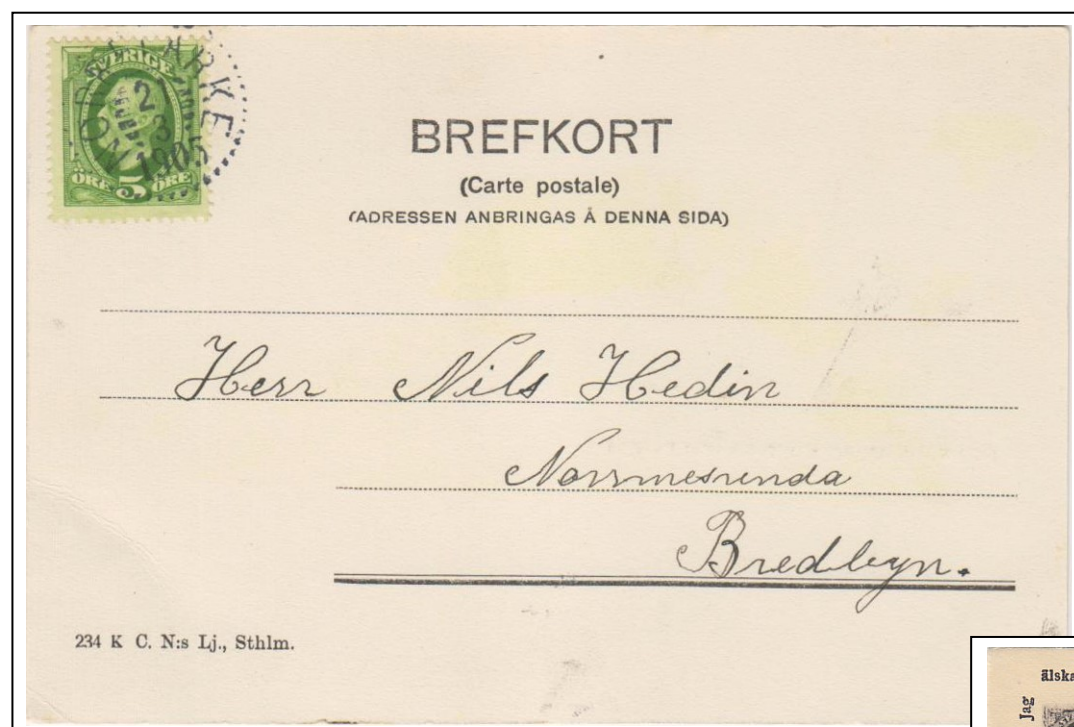 SVERIGE
21
3
1905
ÖRE 5 ÖRE
BREFKORT
(Carte postale)
(ADRESSEN ANBRINGAS Å DENNA SIDA)
Herr Nils Hedin
Norrmesunda
Bredbyn.
234 K C. N:s Lj., Sthlm.
älska
Jag